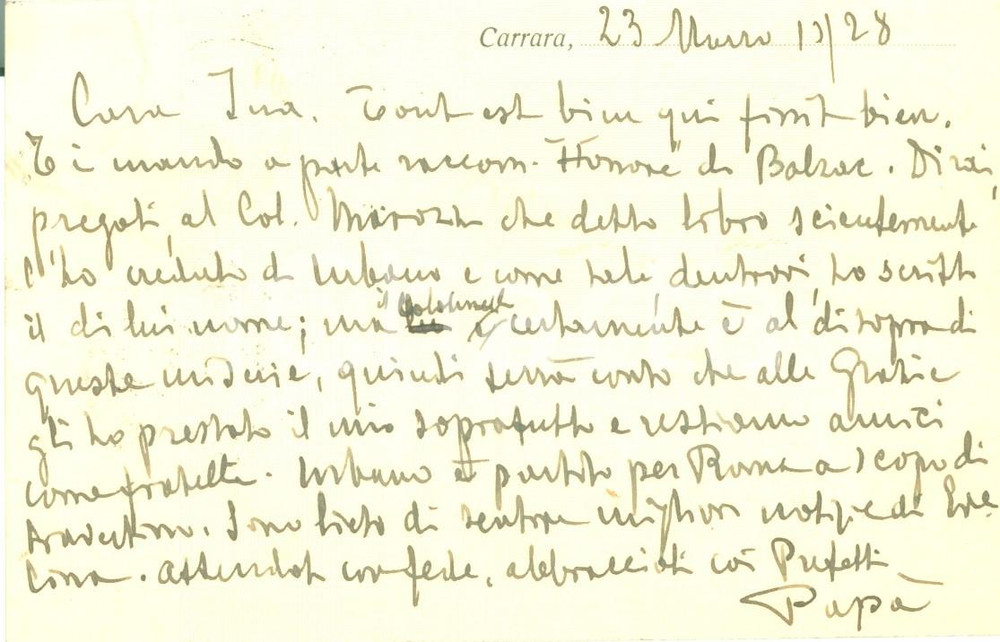 Carrara, 23 Marzo 1928
Cara Ina. Tout est bien qui finit bien.
Ti mando a parte raccom. Honoré di Balzac. Dirai,
pregoti, al Col. che detto libro scientemente
l'ho creduto di Urbano e come tale dentrovi, ho scritto
il di lui nome; ma il Colonnello certamente è al disopra di
queste miserie, quindi terrà conto che alle Grazie
gli ho prestato il mio soprafutto e restiamo amici
come fratelli. Urbano è partito per Roma a scopo di
Sono lieto di sentire migliori notizie di
. Attendoti con fede, abbracciati coi Prefetti
Papà